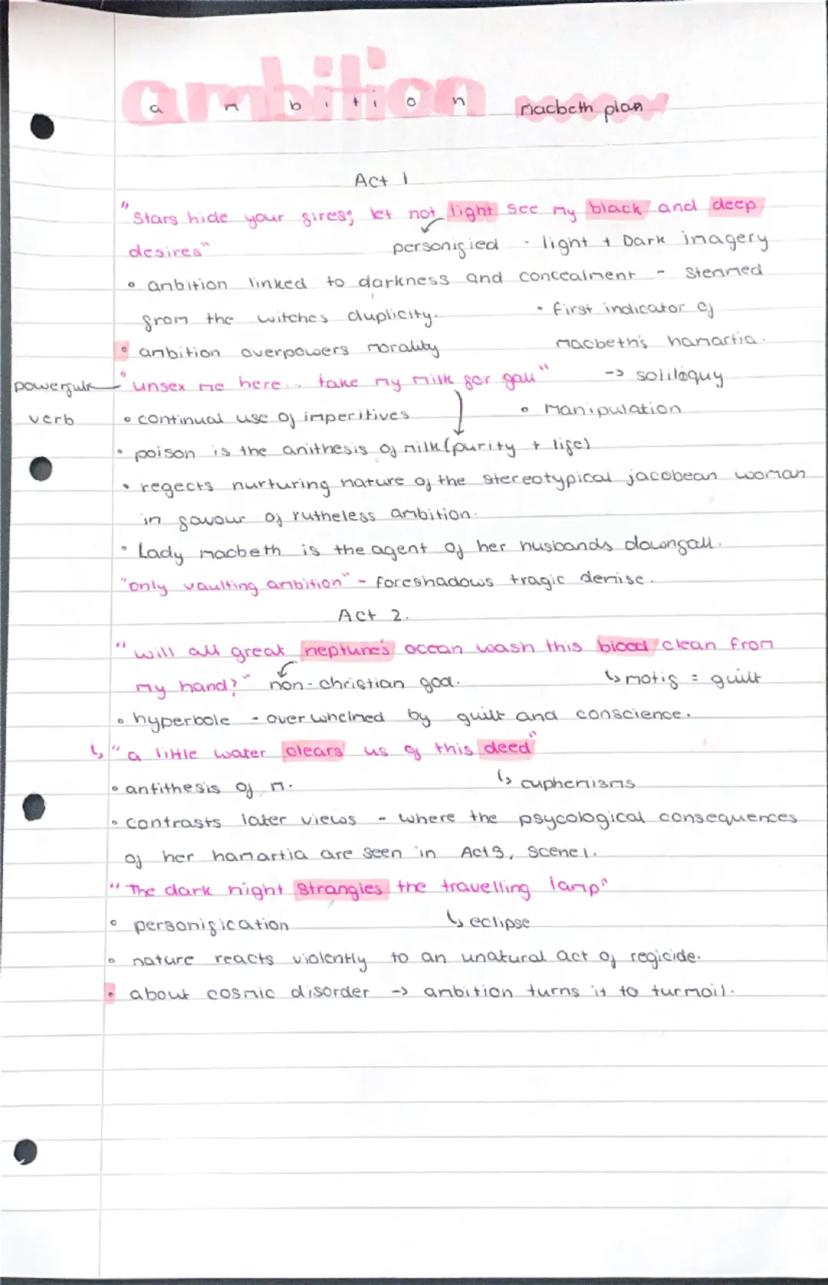 ambition
a m b i t i o n macbeth plan
Act 1
"Stars hide your fires, let not light see my black and deep
desires" personified - light + Dark imagery
• ambition linked to darkness and concealment - stemmed
from the witches duplicity. • first indicator of
• ambition overpowers morality macbeth's hamartia.
powerful verb "unsex me here.. take my milk for gall" -> soliloquy
• continual use of imperitives • Manipulation
• poison is the anithesis of milk (purity + life)
• regects nurturing nature of the stereotypical jacobean woman
in favour of rutheless ambition.
• Lady macbeth is the agent of her husbands downfall.
"only vaulting ambition" - foreshadows tragic demise.
Act 2.
"will all great neptune's ocean wash this blood clean from
my hand?" non-christian god. ↳ motif = guilt
• hyperbole - overwhelmed by guilt and conscience.
↳ "a little water clears us of this deed"
• antithesis of m. ↳ euphemisms
• contrasts later views - where the psycological consequences
of her hamartia are seen in Act 5, scene 1.
"The dark night strangles the travelling lamp"
• personification ↳ eclipse
• nature reacts violently to an unnatural act of regicide.
• about cosmic disorder -> ambition turns it to turmoil.